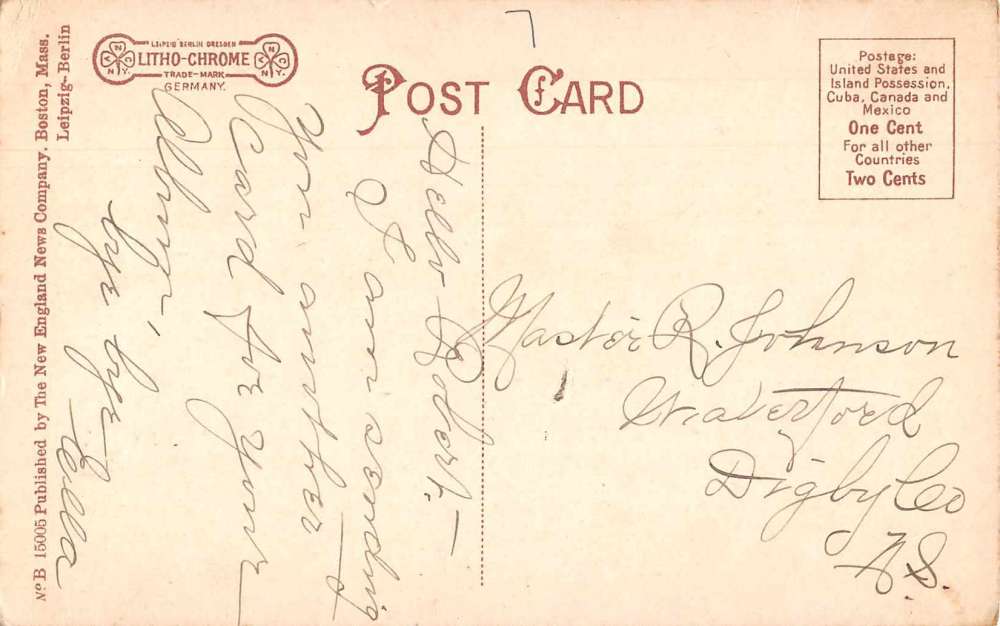 Nº B 15005 Published by The New England News Company, Boston, Mass.
Leipzig-Berlin
LEIPZIG BERLIN DRESDEN
LITHO-CHROME
TRADE-MARK
GERMANY.
POST CARD
Postage:
United States and
Island Possession,
Cuba, Canada and
Mexico
One Cent
For all other
Countries
Two Cents
Hello Robert.—
I am sending
You another
Card for your
Album,
bye bye
Ella
Master R. Johnson
Waterford
Digby Co
N.S.